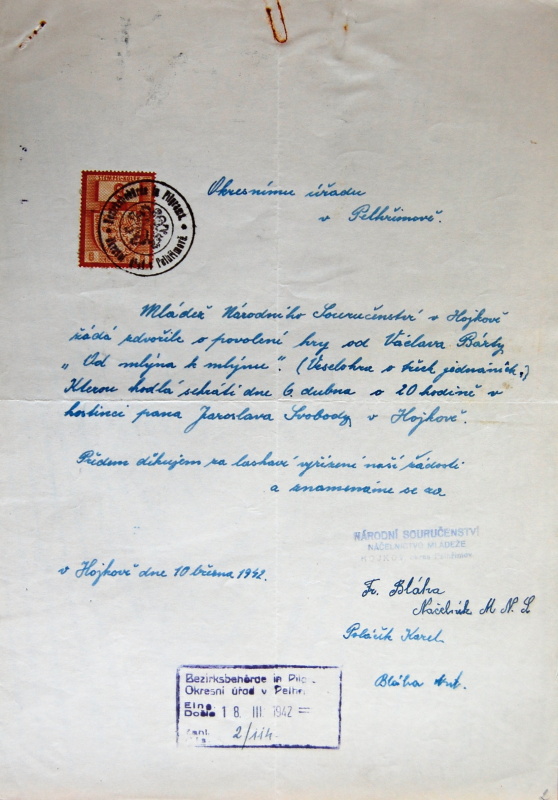 STEMPEL-ADLER
Bezirksbehörde in Pilgrams
Okresní úřad v Pelhřimově
Okresnímu úřadu
v Pelhřimově.
Mládež Národního Souručenství v Hojkově
žádá zdvořile o povolení hry od Václava Bárty
„Od mlýna k mlýnu". (Veselohra o třech jednáních.)
Kterou hodlá sehráti dne 6. dubna o 20 hodině v
hostinci pana Jaroslava Svobody v Hojkově.
Předem děkujem za laskavé vyřízení naší žádosti
a znamenáme se za
NÁRODNÍ SOURUČENSTVÍ
NÁČELNICTVO MLÁDEŽE
HOJKOV
v Hojkově dne 10 března 1942.
Fr. Bláha
Náčelník M N. S.
Poláčík Karel
Bláha Ant.
Bezirksbehörde in Pilg
Okresní úřad v Pelhř
Eing
Došlo 18. III. 1942
2/